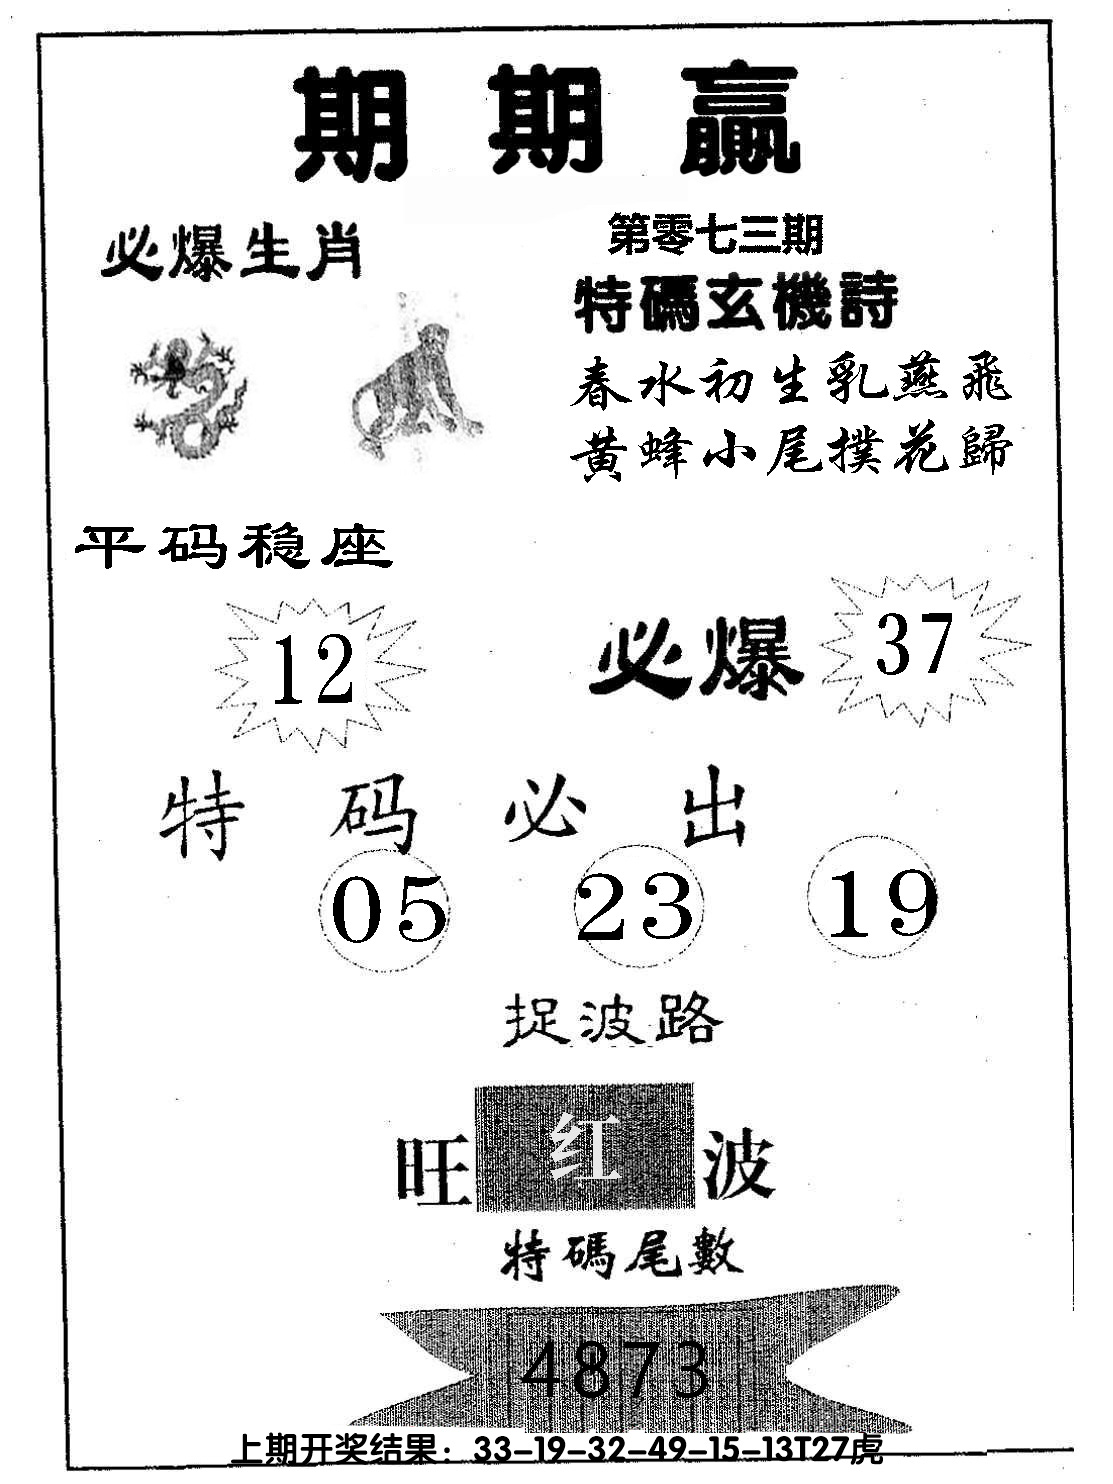 期期赢
必爆生肖
第零七三期
特碼玄機詩
春水初生乳燕飛
黄蜂小尾撲花歸
平码稳座
12
必爆 37
特码必出
05 23 19
捉波路
旺红波
特碼尾數
4873
上期开奖结果：33-19-32-49-15-13T27虎